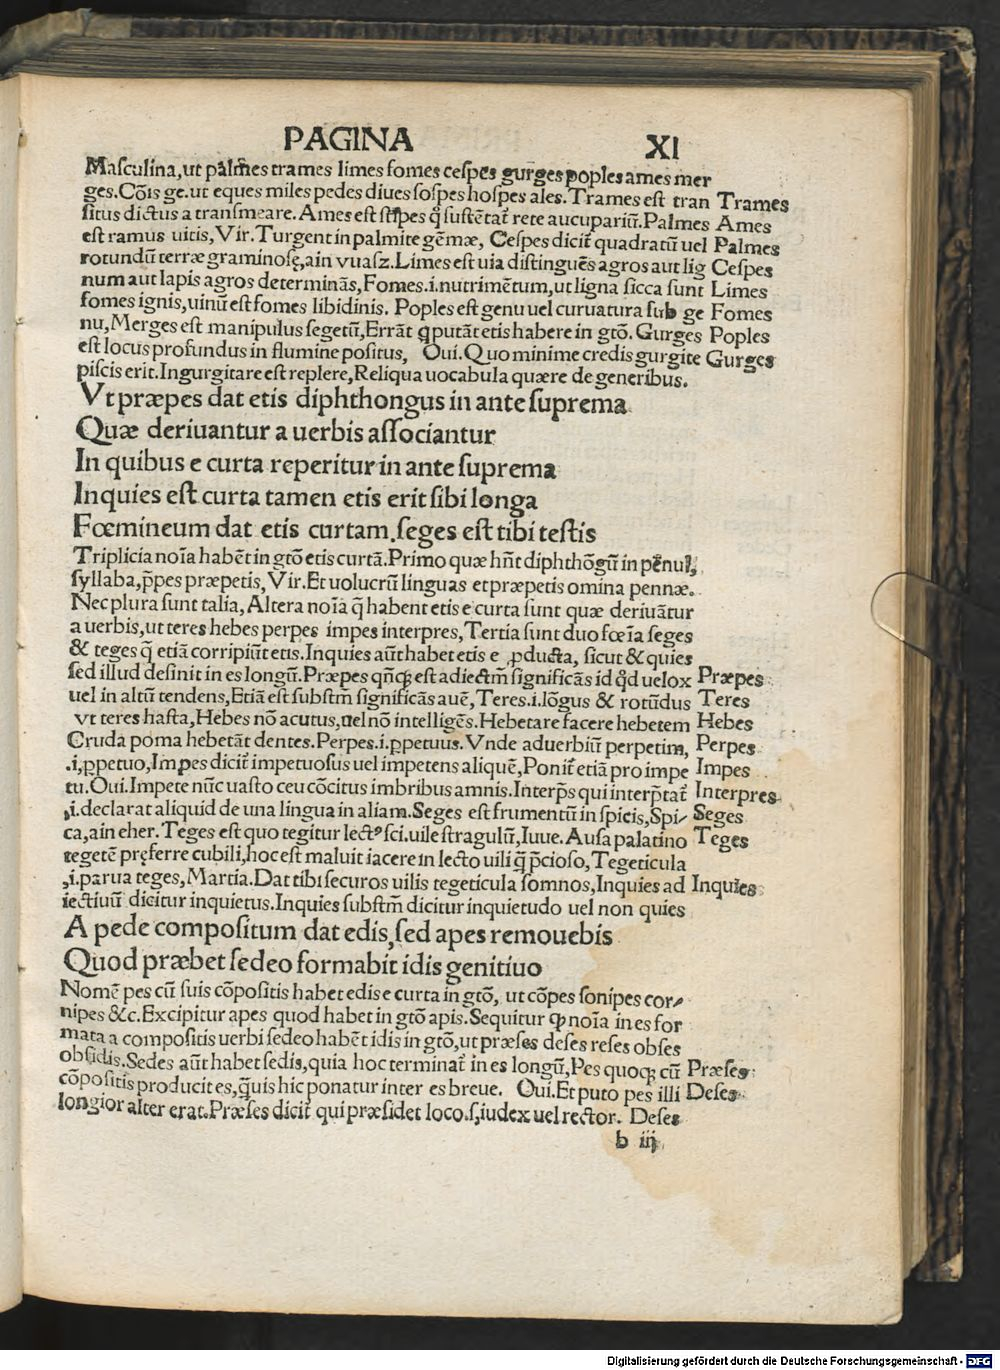 PAGINA XI
Masculina,ut palmes trames limes fomes ceſpes gurges poples ames mer
ges.Cōis ge.ut eques miles pedes diues ſoſpes hoſpes ales.Trames eſt tran Trames
ſitus dictus a tranſmeare.Ames eſt ſtipes q̃ ſuſtētat̃ rete aucupariū.Palmes Ames
eſt ramus uitis,Vir.Turgent in palmite gēmæ, Ceſpes dicit̃ quadratū uel Palmes
rotundū terræ graminoſę,ain vuaſz.Limes eſt uia diſtinguēs agros aut lig Ceſpes
num aut lapis agros determināS,Fomes.i.nutrimētum,ut ligna ſicca ſunt Limes
fomes ignis,uinū eſt fomes libidinis. Poples eſt genu uel curuatura ſub ge Fomes
nu,Merges eſt manipulus ſegetū,Errāt q putāt etis habere in gtō. Gurges Poples
eſt locus profundus in flumine poſitus, Oui.Quo minime credis gurgite Gurges
piſcis erit.Ingurgitare eſt replere,Reliqua uocabula quære de generibus.
Vt præpes dat etis diphthongus in ante ſuprema
Quæ deriuantur a uerbis aſſociantur
In quibus e curta reperitur in ante ſuprema
Inquies eſt curta tamen etis erit ſibi longa
Fœmineum dat etis curtam,ſeges eſt tibi teſtis
Triplicia noīa habēt in gtō etis curtā.Primo quæ hn̄t diphthōgū in pēnul,
ſyllaba,p̄pes præpetis,Vir.Et uolucrū linguas et præpetis omina pennæ.
Nec plura ſunt talia,Altera noīa q̃ habent etis e curta ſunt quæ deriuātur
a uerbis,ut teres hebes perpes impes interpres,Tertia ſunt duo fœīa ſeges
& teges q̃ etiā corripiūt etis.Inquies aūt habet etis e ꝓducta, ſicut & quies
ſed illud deſinit in es longū.Præpes qn̄qꝫ eſt adiectm̄ ſignificās id qđ uelox Præpes
uel in altū tendens,Etiā eſt ſubſtm̄ ſignificās auē,Teres.i.lōgus & rotūdus Teres
vt teres haſta,Hebes nō acutus,uel nō intelligēs.Hebetare facere hebetem Hebes
Cruda poma hebetāt dentes.Perpes.i.ꝑpetuus.Vnde aduerbiū perpetim, Perpes
.i,ꝑpetuo,Impes dicit̃ impetuoſus uel impetens aliquē,Ponit̃ etiā pro impe Impes
tu.Oui.Impete nūc uaſto ceu cōcitus imbribus amnis.Interp̄s qui interp̄tat̃ Interpres
,i.declarat aliquid de una lingua in aliam.Seges eſt frumentū in ſpicis,Spi⸗ Seges
ca,ain eher.Teges eſt quo tegitur lectꝰ ſci.uile ſtragulū,Iuue.Auſa palatino Teges
tegetē pręferre cubili,hoc eſt maluit iacere in lecto uili q̃ p̄cioſo,Tegeticula
,i.parua teges,Martia.Dat tibi ſecuros uilis tegeticula ſomnos,Inquies ad Inquies
iectiuū dicitur inquietus.Inquies ſubſtm̄ dicitur inquietudo uel non quies
A pede compoſitum dat edis,ſed apes remouebis
Quod præbet ſedeo formabit idis genitiuo
Nomē pes cū ſuis cōpoſitis habet edis e curta in gtō, ut cōpes ſonipes cor⸗
nipes &c.Excipitur apes quod habet in gtō apis.Sequitur ꝙ noīa in es for
mata a compoſitis uerbi ſedeo habēt idis in gtō,ut præſes deſes reſes obſes
obſidis.Sedes aūt habet ſedis,quia hoc terminat̃ in es longū,Pes quoqꝫ cū Præſes
cōpoſitis producit es,q̃uis hic ponatur inter es breue. Oui.Et puto pes illi Deſes
longior alter erat.Præſes dicit̃ qui præſidet loco.ſ,iudex uel rector. Deſes
b iij
Digitalisierung gefördert durch die Deutsche Forschungsgemeinschaft - DFG